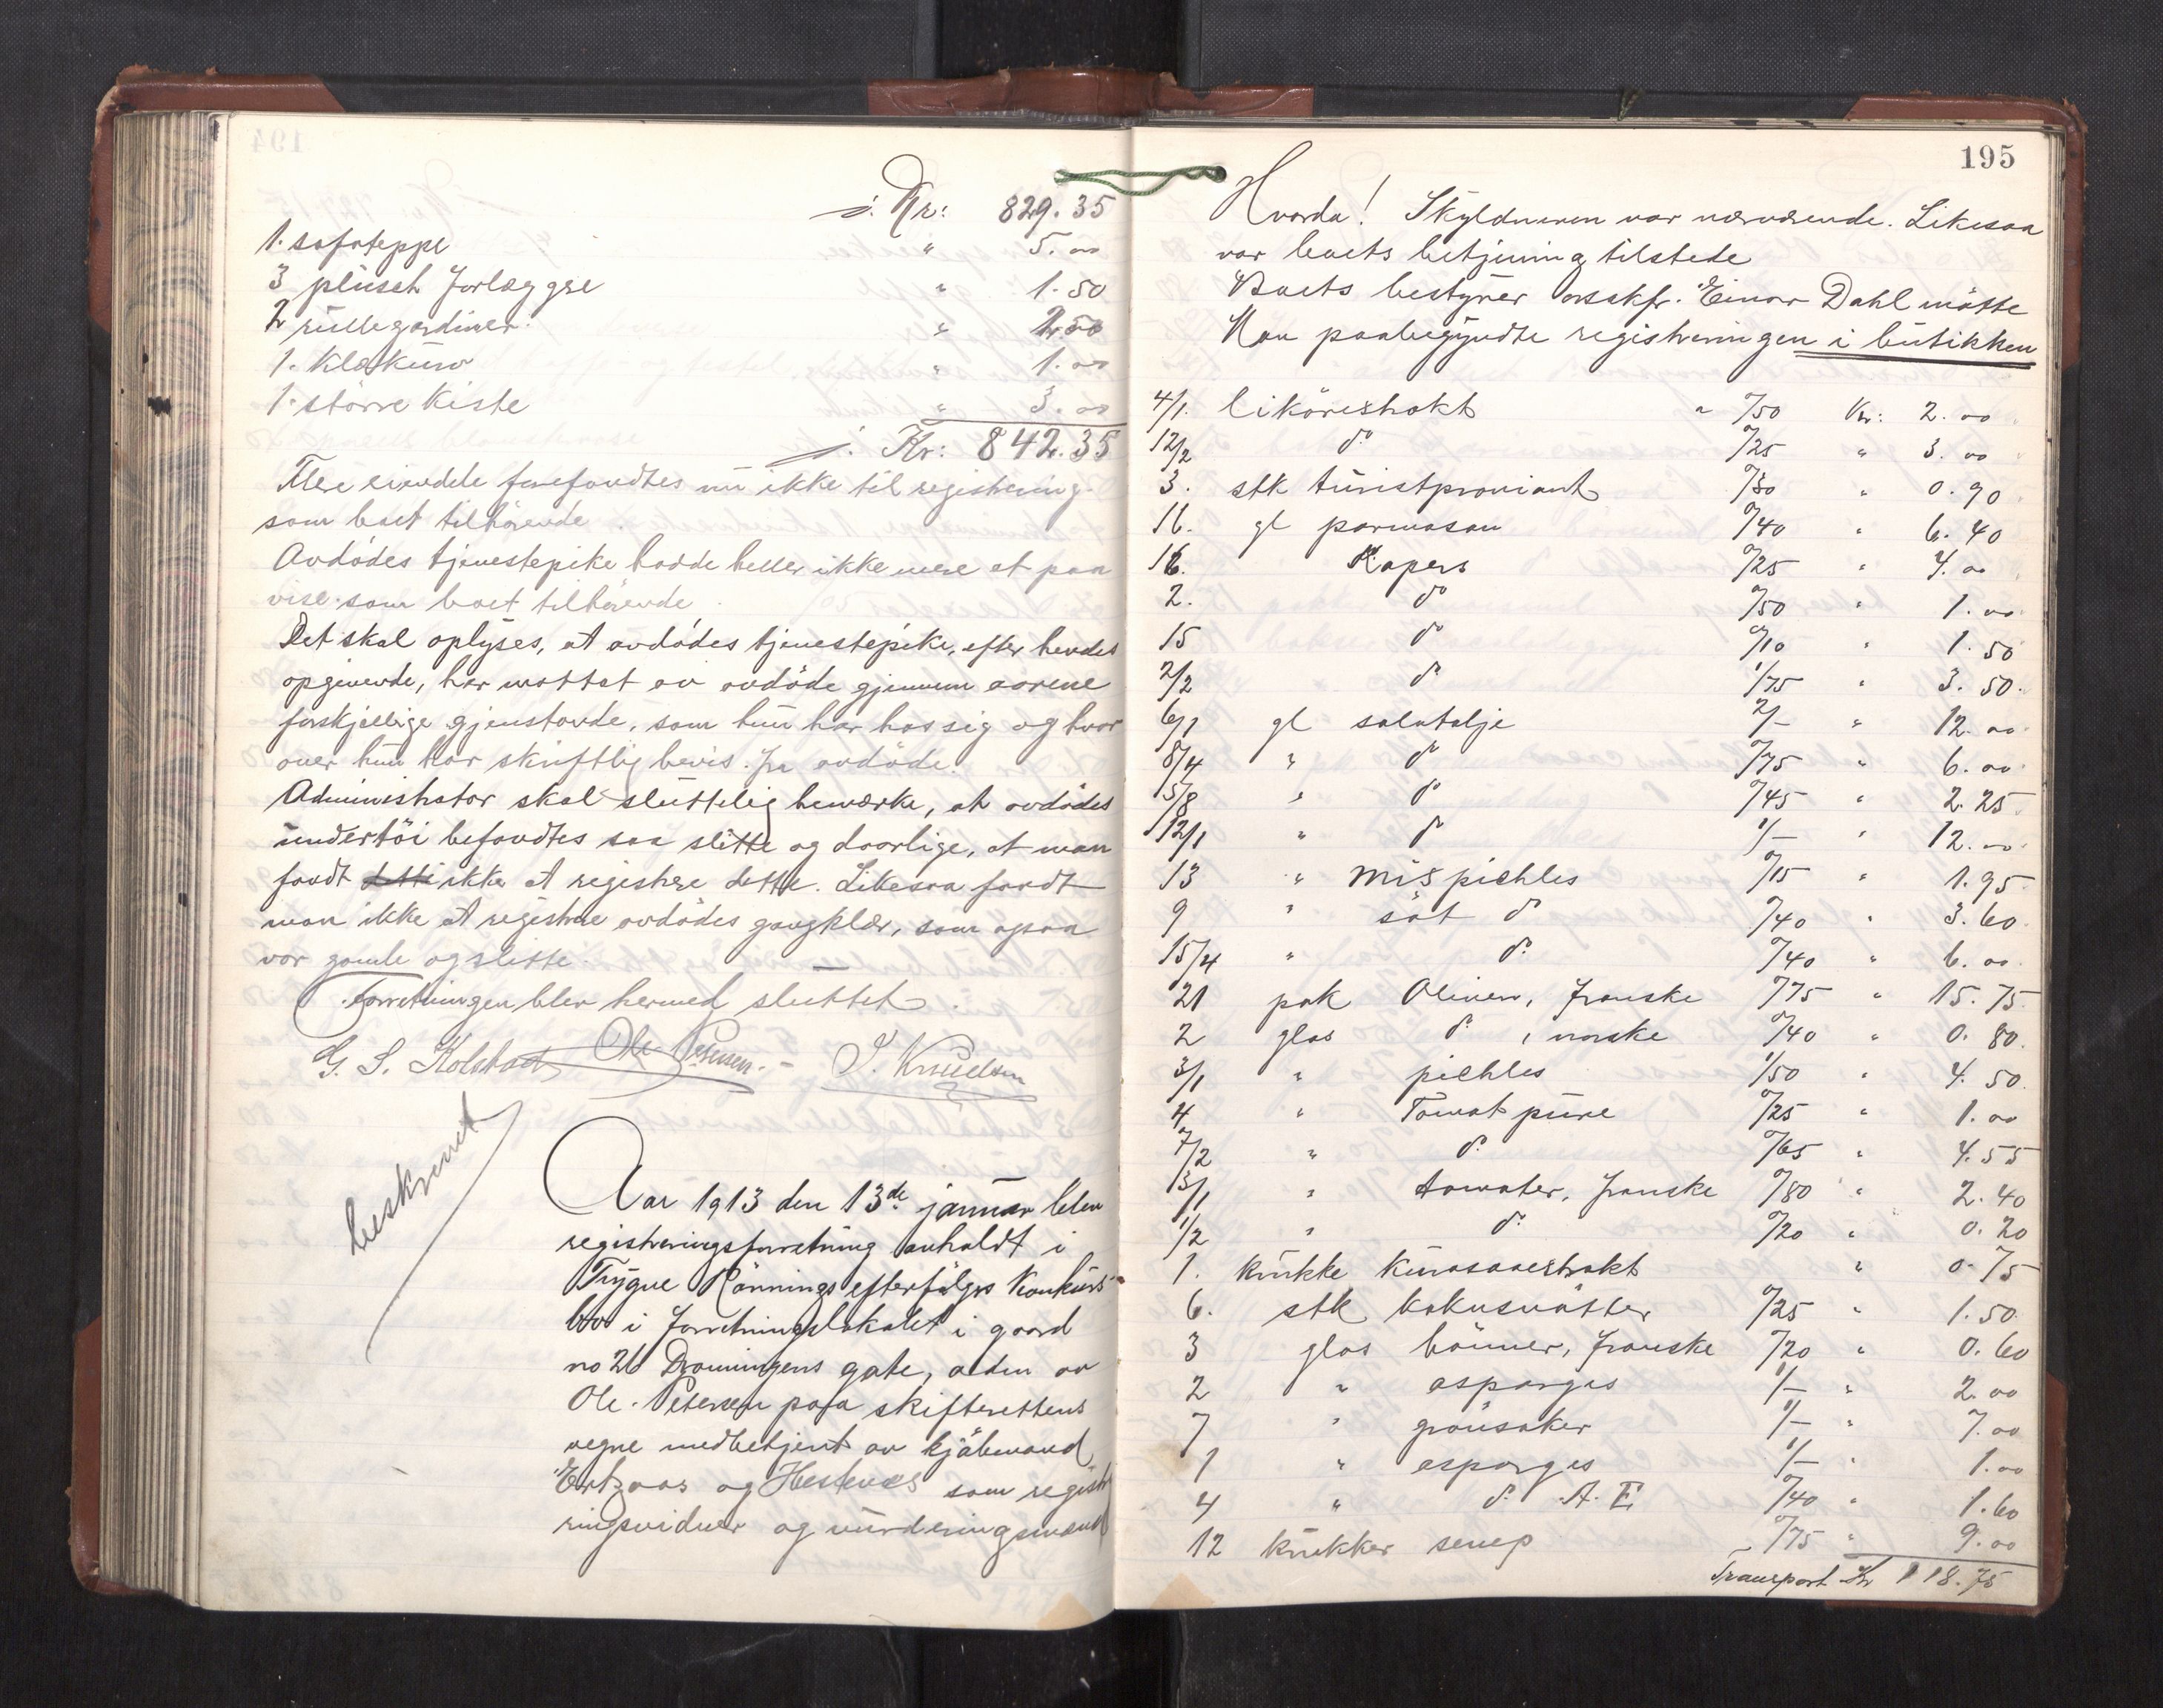 s. Kr: 829.35
1. sofateppe " 5.00
3 plüsch forlæggre " 1.50
2 rullegardiner " 2.50
1. Klækurv " 1.00
1. större kiste " 3.00
s. Kr: 842.35
Flere eiendele forefandtes nu ikke til registrering
som boet tilhörende.
Avdödes tjenestepike hadde heller ikke mere at paa
vise som boet tilhörende.
Det skal oplyses, at avdödes tjenestepike, efter hendes
opgivende, har mottat av avdöde gjennem aarene
forskjellige gjenstande, som hun har hos sig og hvor
over hun har skriftlig bevis fra avdöde.
Administrator skal sluttelig bemærke, at avdödes
undertöi befandtes saa slitte og daarlige, at man
fandt dette ikke at registrere dette. Likesaa fandt
man ikke at registrere avdödes gangklær, som ogsaa
var gamle og slitte.
Forretningen blev hermed sluttet.
G. S. Kolstad Ole Petersen. - I. Knudsen
beskrevet
Aar 1913 den 13de januar blev
registreringsforretning anholdt i
Trygve Rönnings efterfölgers konkurs
bo i forretningslokalet i gaard
no 26 Dronningens gate, av den av
Ole Petersen paa skifterettens
vegne medbetjent av kjöbmand
Ertzaas og Hestenes som registre
ringsvidner og vurderingsmænd
195
Hvorda! Skyldneren var nærværende. Likesaa
var boets betjening tilstede
Boets bestyrer orsskfr. Einar Dahl mötte
Man paabegyndte registreringen i butikken
4/1. likörekstrakt " 0/50 Kr: 2.00
12/2 do 0/25 " 3.00
3. stk turistproviant 0/30 " 0.90
16. gl parmasan 0/40 " 6.40
16. Kapers 0/25 " 4.00
2. do 0/50 " 1.00
15 do 0/10 " 1.50
2/2 do 1/75 " 3.50
6/1 gl salatolje 2/- " 12.00
8/4 " do 0/75 " 6.00
5/8 " do 0/45 " 2.25
12/1 " do 1/- " 12.00
13 " mixpickles 0/15 " 1.95
9 " söt do 0/40 " 3.60
15/4 " do 0/40 " 6.00
21 pak Oliven, franske 0/75 " 15.75
2 glas do, norske 0/40 " 0.80
3/1 " pickles 1/50 " 4.50
4 " Tomat püre 0/25 " 1.00
7/2 " do 0/65 " 4.55
3/1 " tomater, franske 0/80 " 2.40
1/2 " do 0/20 " 0.20
1. krukke Kurasaoestrakt " 0.75
6. stk kokusnötter 0/25 " 1.50
3 glas bönner, franske 0/20 " 0.60
2 " asparges 1/- " 2.00
7 " grönsaker 1/- " 7.00
1 " asparges 1/- " 1.00
4 " do A. E. 0/40 " 1.60
12 krukker senep 0/75 " 9.00
Transport Kr 118.75